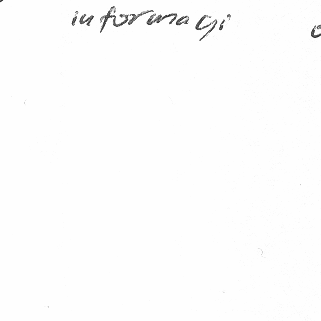 informaçi